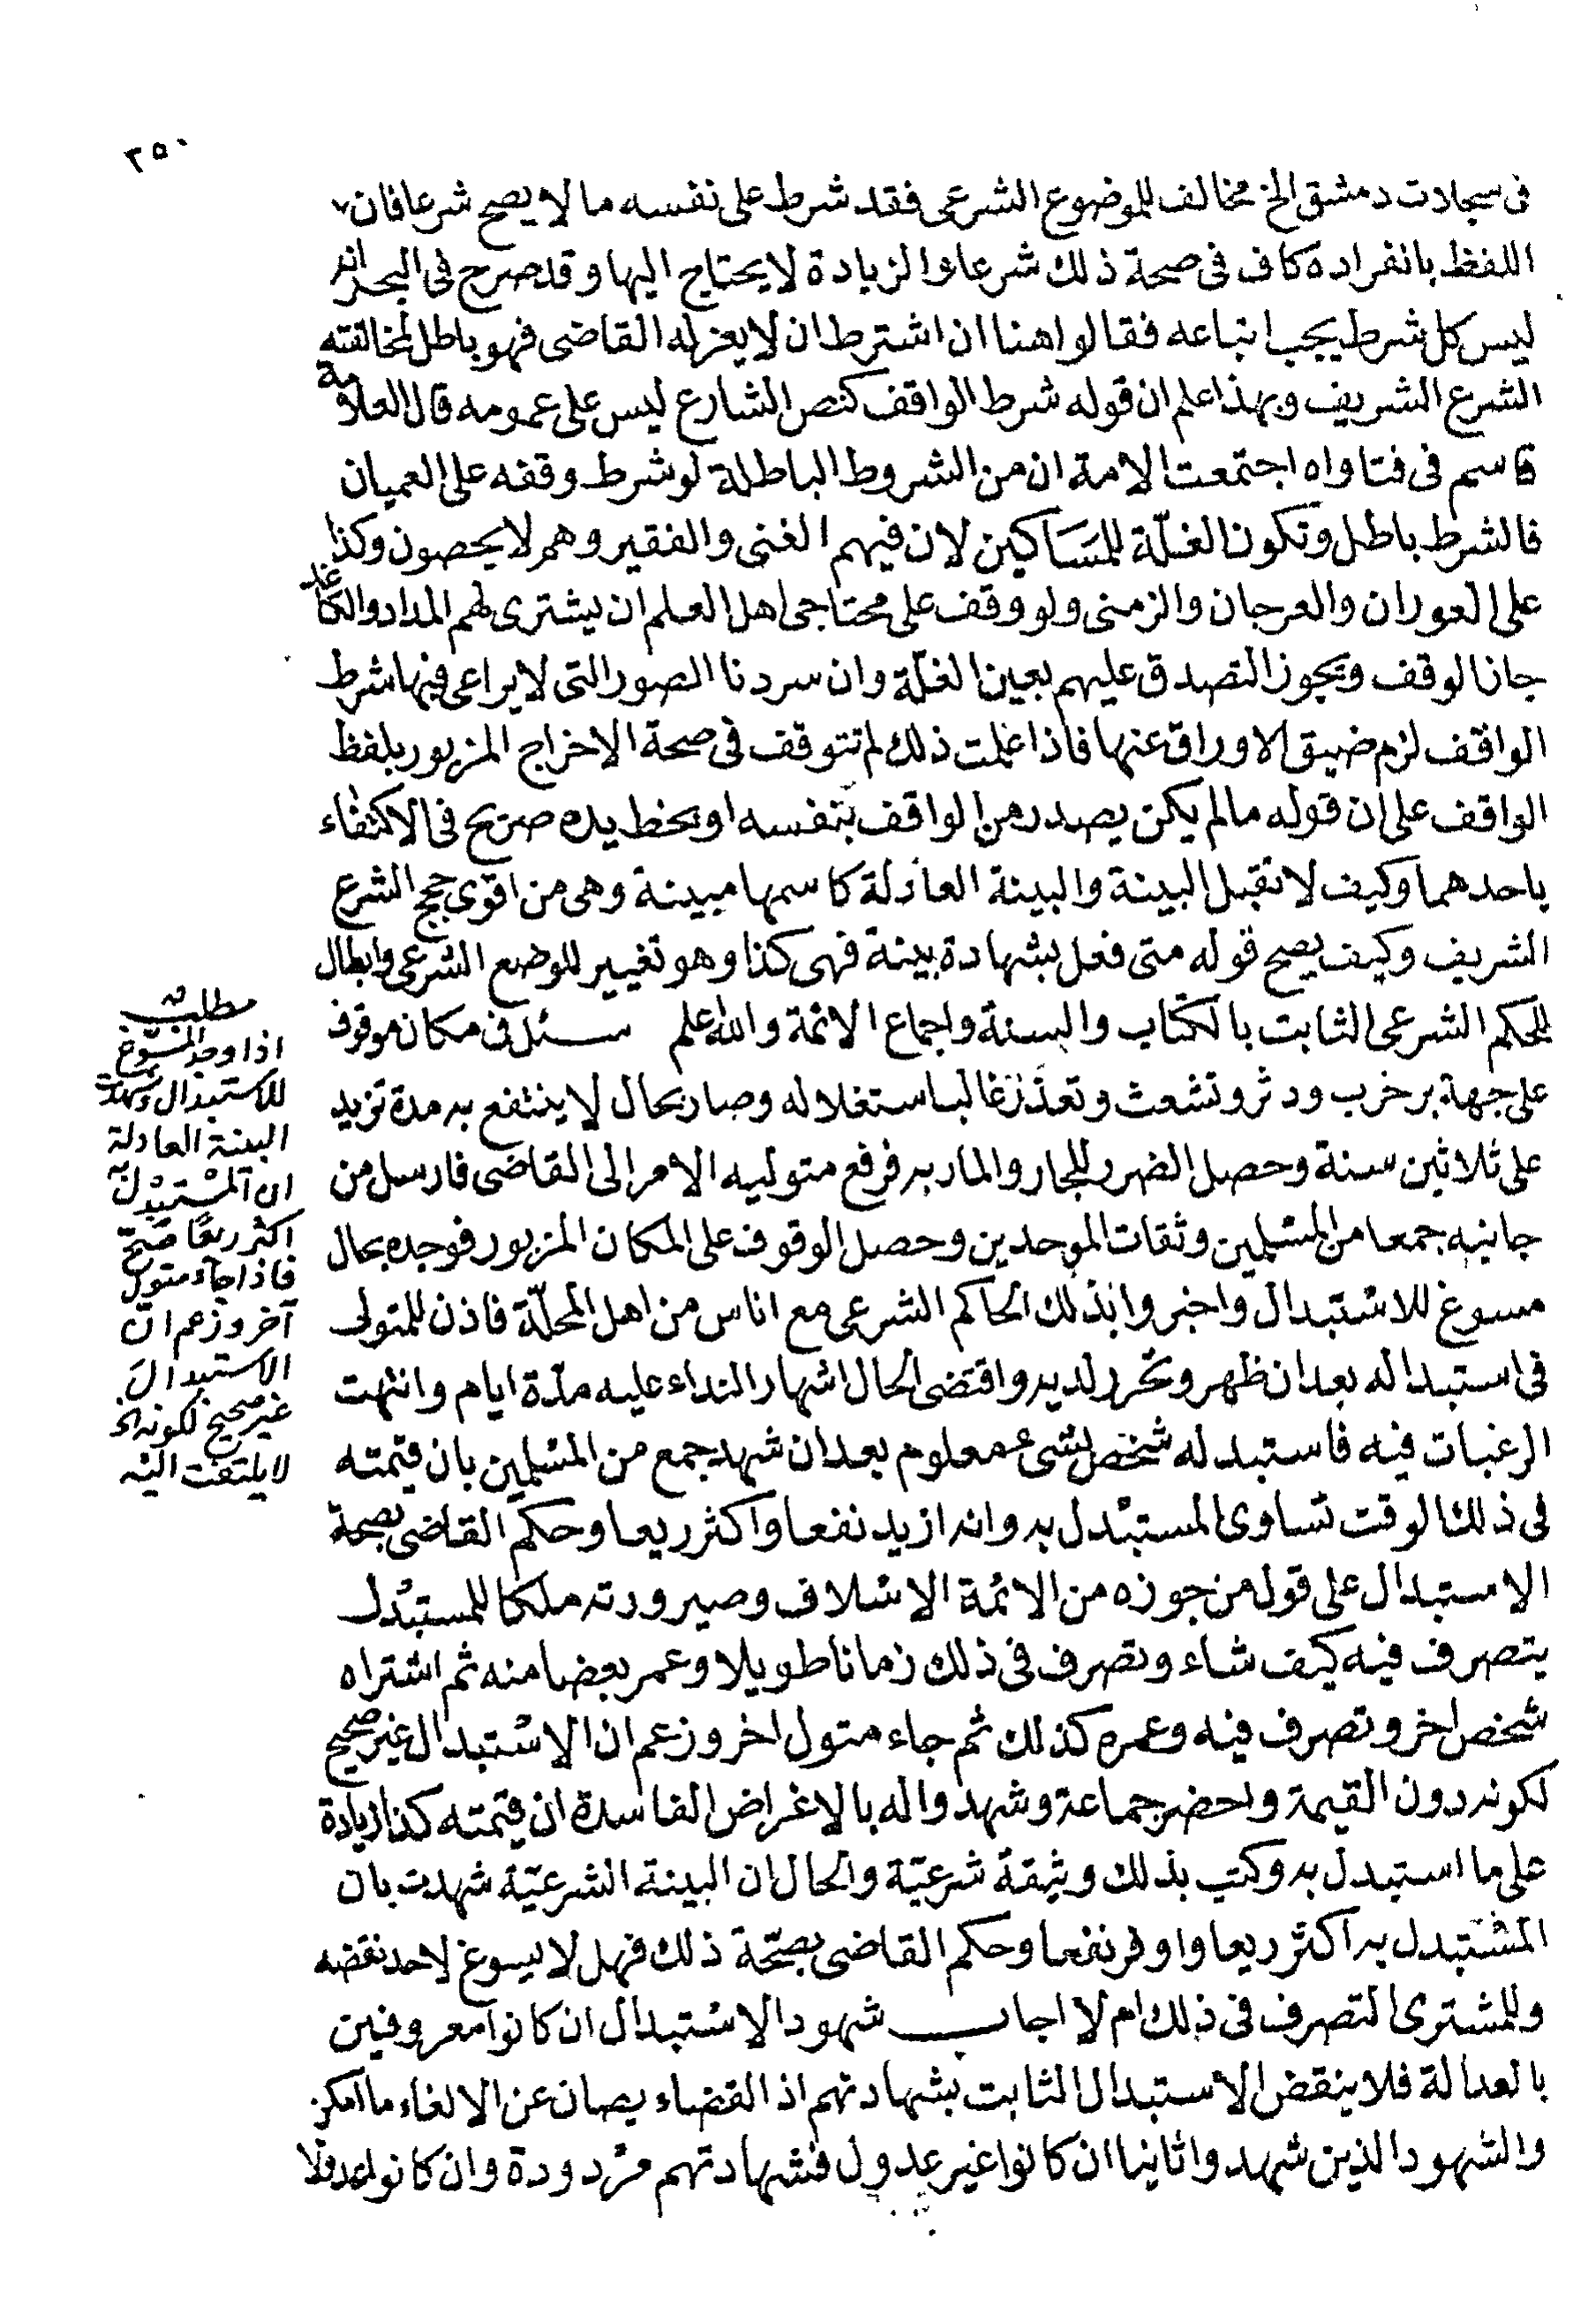 ٢٥٠
فى سجلات دمشق الخ مخالف للموضوع الشرعى فقد شرط على نفسه ما لا يصح شرعا فان
اللفظ بانفراده كاف فى صحة ذلك شرعا والزيادة لا يحتاج اليها وقد صرح فى البحر انه
ليس كل شرط يجب اتباعه فقالوا هنا ان اشترط ان لا يعزله القاضى فهو باطل لمخالفته
الشرع الشريف وبهذا علم ان قوله شرط الواقف كنص الشارع ليس على عمومه قال العلامة
قاسم فى فتاواه اجتمعت الامة ان من الشروط الباطلة لو شرط وقفه على العميان
فالشرط باطل وتكون الغلّة للمسَاكين لان فيهم الغنى والفقير وهم لا يحصون وكذا
على العوران والعرجان والزمنى ولو وقف على محتاجى اهل العلم ان يشترى لهم المداد والكاغد
جاز الوقف ويجوز التصدق عليهم بعين الغلّة وان سردنا الصور التى لا يراعى فيها شرط
الواقف لزم ضيق الاوراق عنها فاذا علمت ذلك لم تتوقف فى صحة الاخراج المزبور بلفظ
الواقف على ان قوله مالم يكن يصدر من الواقف بنفسه او بخط يده صريح فى الاكتفاء
باحدهما وكيف لا تقبل البينة والبينة العادلة كاسمها مبينة وهى من اقوى حجج الشرع
الشريف وكيف يصح قوله متى فعل بشهادة بينة فهى كذا وهو تغيير للوضع الشرعى وابطال
للحكم الشرعى الثابت بالكتاب والسنة واجماع الائمة والله اعلم سئل فى مكان موقوف
على جهة بر خرب ودثر وتشعث وتعذر غالب استغلاله وصار بحال لا ينتفع به مدة تزيد
على ثلاثين سنة وحصل الضرر للجار والمار به فرفع متوليه الامر الى القاضى فارسل من
جانبه جمعا من المسلمين وثقات الموحدين وحصل الوقوف على المكان المزبور فوجده بحال
مسوغ للاستبدال واخبروا بذلك الحاكم الشرعى مع اناس من اهل المحلّة فاذن للمتولى
فى استبداله بعد ان ظهر وتحرر لديه واقتضى الحال اشهار النداء عليه مدّة ايام وانتهت
الرغبات فيه فاستبدله شخص بشىء معلوم بعد ان شهد جمع من المسلمين بان قيمته
فى ذلك الوقت تساوى المستبدل به وانه ازيد نفعا واكثر ريعا وحكم القاضى بصحة
الاستبدال على قول من جوزه من الائمة الاسلاف وصيرورته ملكا للمستبدل
يتصرف فيه كيف شاء وتصرف فى ذلك زمانا طويلا وعمر بعضا منه ثم اشتراه
شخص اخر وتصرف فيه وعمره كذلك ثم جاء متول اخر وزعم ان الاستبدال غير صحيح
لكونه دون القيمة واحضر جماعة وشهدوا له بالاغراض الفاسدة ان قيمته كذا زيادة
على ما استبدل به وكتب بذلك وثيقة شرعيّة والحال ان البينة الشرعيّة شهدت بان
المستبدل به اكثر ريعا واوفر نفعا وحكم القاضى بصحّة ذلك فهل لا يسوغ لاحد نقضه
وللمشترى التصرف فى ذلك ام لا اجاب شهود الاستبدال ان كانوا معروفين
بالعدالة فلا ينقض الاستبدال الثابت بشهادتهم اذ القضاء يصان عن الالغاء ما امكن
والشهود الذين شهدوا ثانيا ان كانوا غير عدول فشهادتهم مردودة وان كانوا عدولا
مطلب
اذا وجد المسوّغ
للاستبدال وشهدت
البينة العادلة
ان المستبدل به
اكثر ريعًا صحّ
فاذا جاء متول
آخر وزعم انّ
الاستبدال
غير صحيح لكونه الخ
لا يلتفت اليه